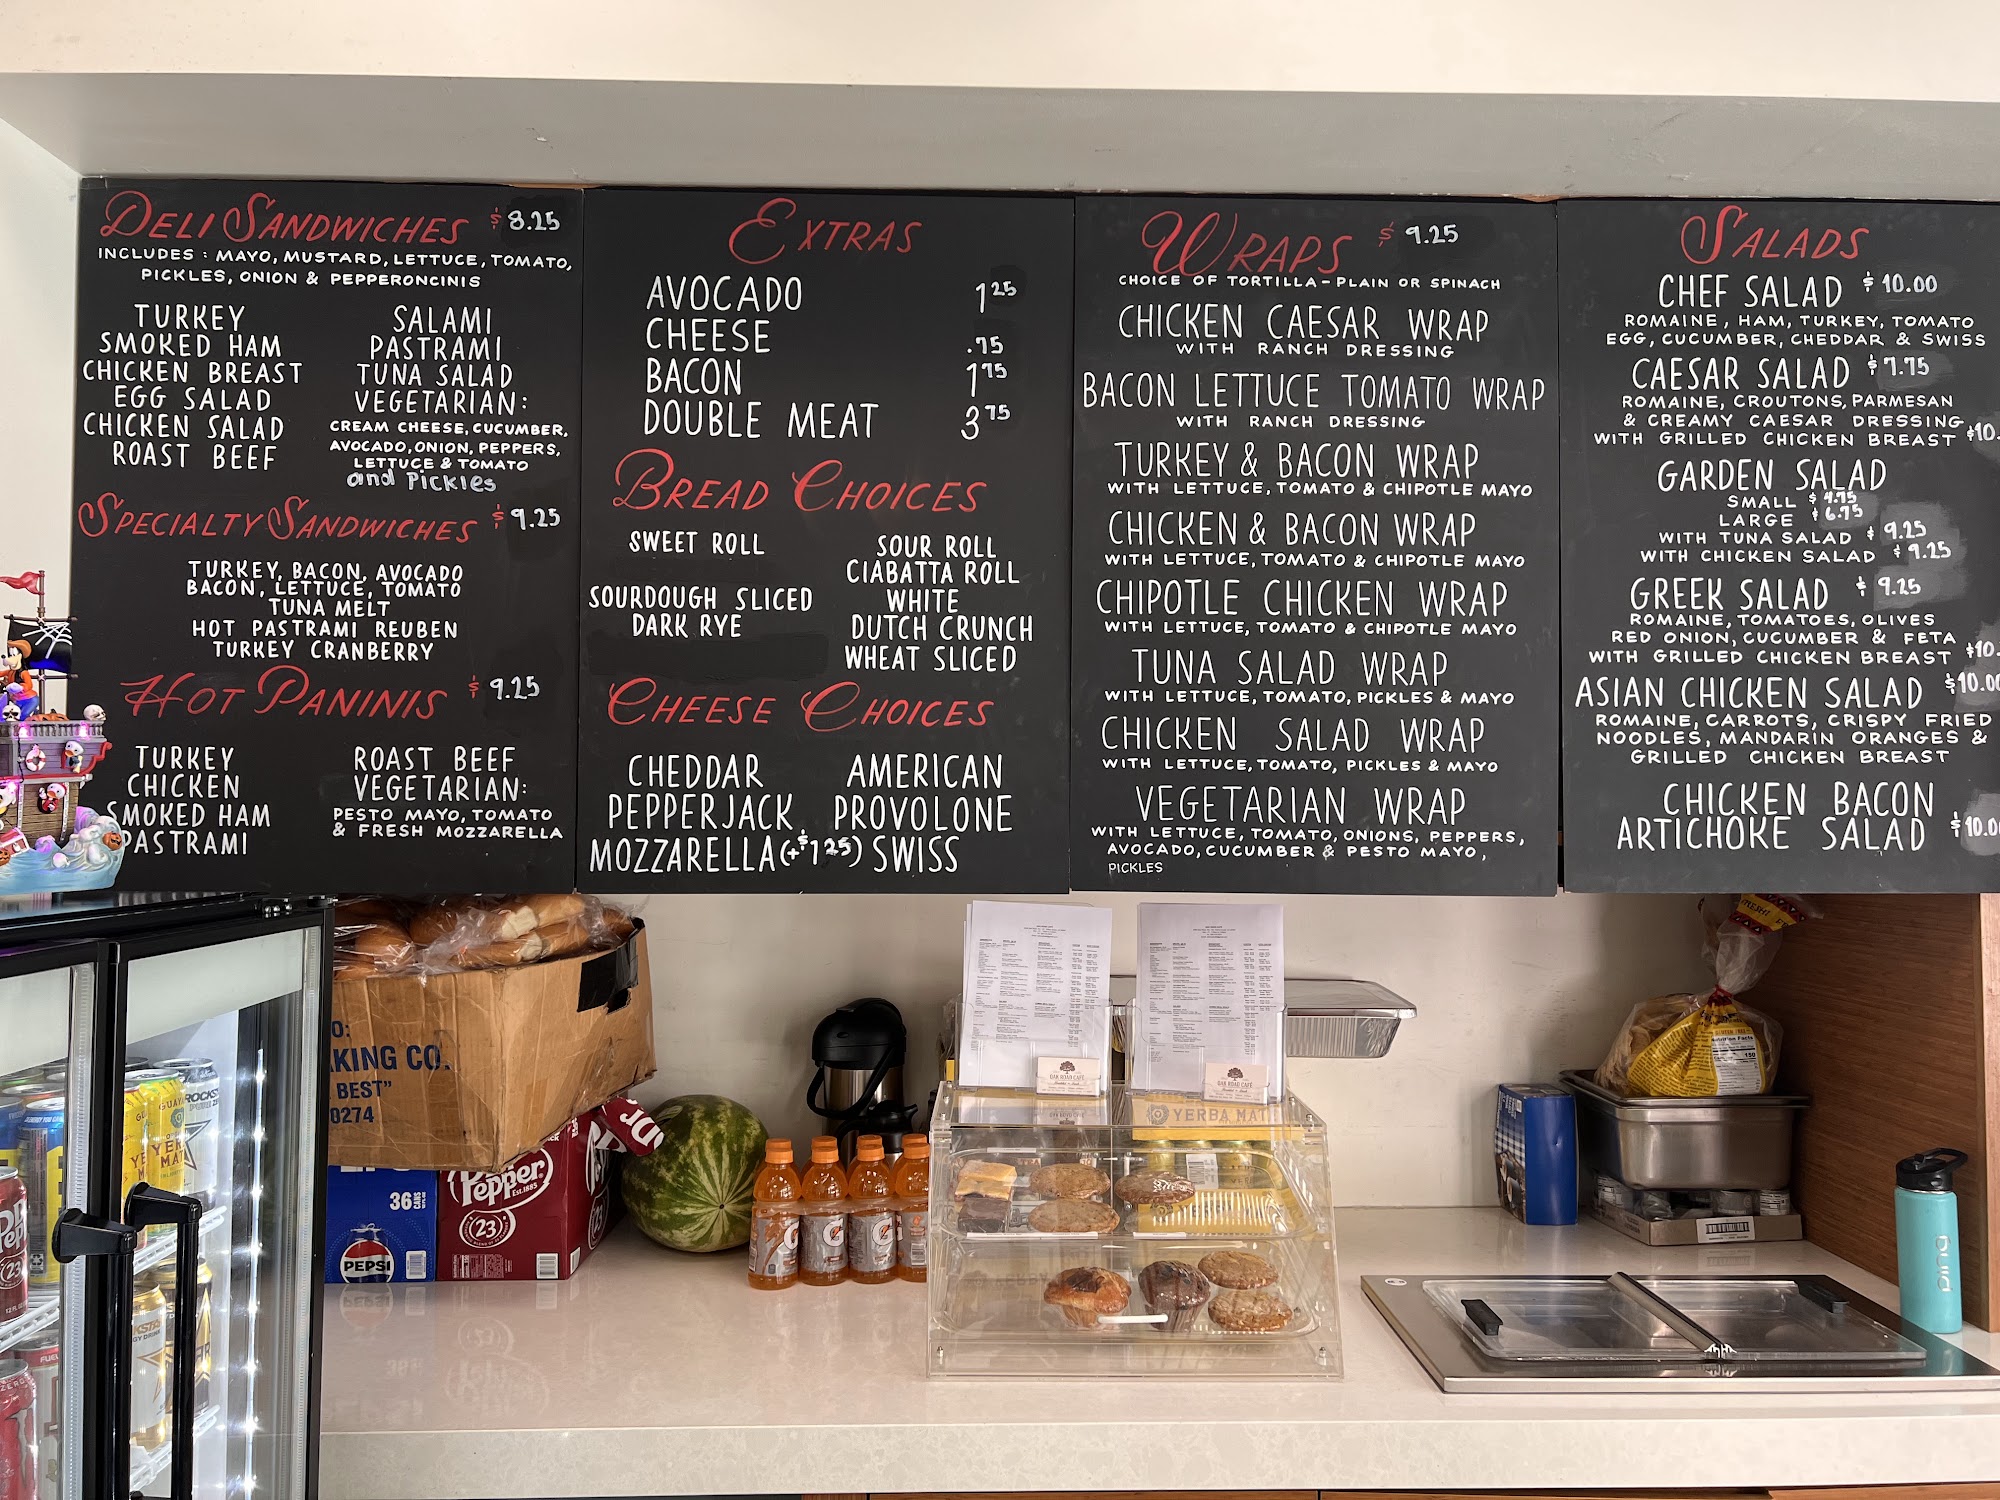 DELI SANDWICHES $8.25
INCLUDES: MAYO, MUSTARD, LETTUCE, TOMATO,
PICKLES, ONION & PEPPERONCINIS
TURKEY
SMOKED HAM
CHICKEN BREAST
EGG SALAD
CHICKEN SALAD
ROAST BEEF
SALAMI
PASTRAMI
TUNA SALAD
VEGETARIAN:
CREAM CHEESE, CUCUMBER,
AVOCADO, ONION, PEPPERS,
LETTUCE & TOMATO
and Pickles
SPECIALTY SANDWICHES $9.25
TURKEY, BACON, AVOCADO
BACON, LETTUCE, TOMATO
TUNA MELT
HOT PASTRAMI REUBEN
TURKEY CRANBERRY
HOT PANINIS $9.25
TURKEY
CHICKEN
SMOKED HAM
PASTRAMI
ROAST BEEF
VEGETARIAN:
PESTO MAYO, TOMATO
& FRESH MOZZARELLA
EXTRAS
AVOCADO 1 25
CHEESE .75
BACON 1 75
DOUBLE MEAT 3 75
BREAD CHOICES
SWEET ROLL
SOURDOUGH SLICED
DARK RYE
SOUR ROLL
CIABATTA ROLL
WHITE
DUTCH CRUNCH
WHEAT SLICED
CHEESE CHOICES
CHEDDAR
PEPPERJACK
MOZZARELLA (+$1 25)
AMERICAN
PROVOLONE
SWISS
WRAPS $9.25
CHOICE OF TORTILLA-PLAIN OR SPINACH
CHICKEN CAESAR WRAP
WITH RANCH DRESSING
BACON LETTUCE TOMATO WRAP
WITH RANCH DRESSING
TURKEY & BACON WRAP
WITH LETTUCE, TOMATO & CHIPOTLE MAYO
CHICKEN & BACON WRAP
WITH LETTUCE, TOMATO & CHIPOTLE MAYO
CHIPOTLE CHICKEN WRAP
WITH LETTUCE, TOMATO & CHIPOTLE MAYO
TUNA SALAD WRAP
WITH LETTUCE, TOMATO, PICKLES & MAYO
CHICKEN SALAD WRAP
WITH LETTUCE, TOMATO, PICKLES & MAYO
VEGETARIAN WRAP
WITH LETTUCE, TOMATO, ONIONS, PEPPERS,
AVOCADO, CUCUMBER & PESTO MAYO,
PICKLES
SALADS
CHEF SALAD $10.00
ROMAINE, HAM, TURKEY, TOMATO
EGG, CUCUMBER, CHEDDAR & SWISS
CAESAR SALAD $7.75
ROMAINE, CROUTONS, PARMESAN
& CREAMY CAESAR DRESSING
WITH GRILLED CHICKEN BREAST $10.
GARDEN SALAD
SMALL $4.75
LARGE $6.75
WITH TUNA SALAD $9.25
WITH CHICKEN SALAD $9.25
GREEK SALAD $9.25
ROMAINE, TOMATOES, OLIVES
RED ONION, CUCUMBER & FETA
WITH GRILLED CHICKEN BREAST $10.
ASIAN CHICKEN SALAD $10.00
ROMAINE, CARROTS, CRISPY FRIED
NOODLES, MANDARIN ORANGES &
GRILLED CHICKEN BREAST
CHICKEN BACON
ARTICHOKE SALAD $10.0
AKING CO.
BEST"
0274
36
PEPSI
Pepper
Est. 1885
23
Dr
G
G
G
OAK ROAD CAFÉ
OAK ROAD CAFÉ
YERBA MAT
Nutrition Facts
150
ROCKS
GUAY
YER
MA
23
ZERO